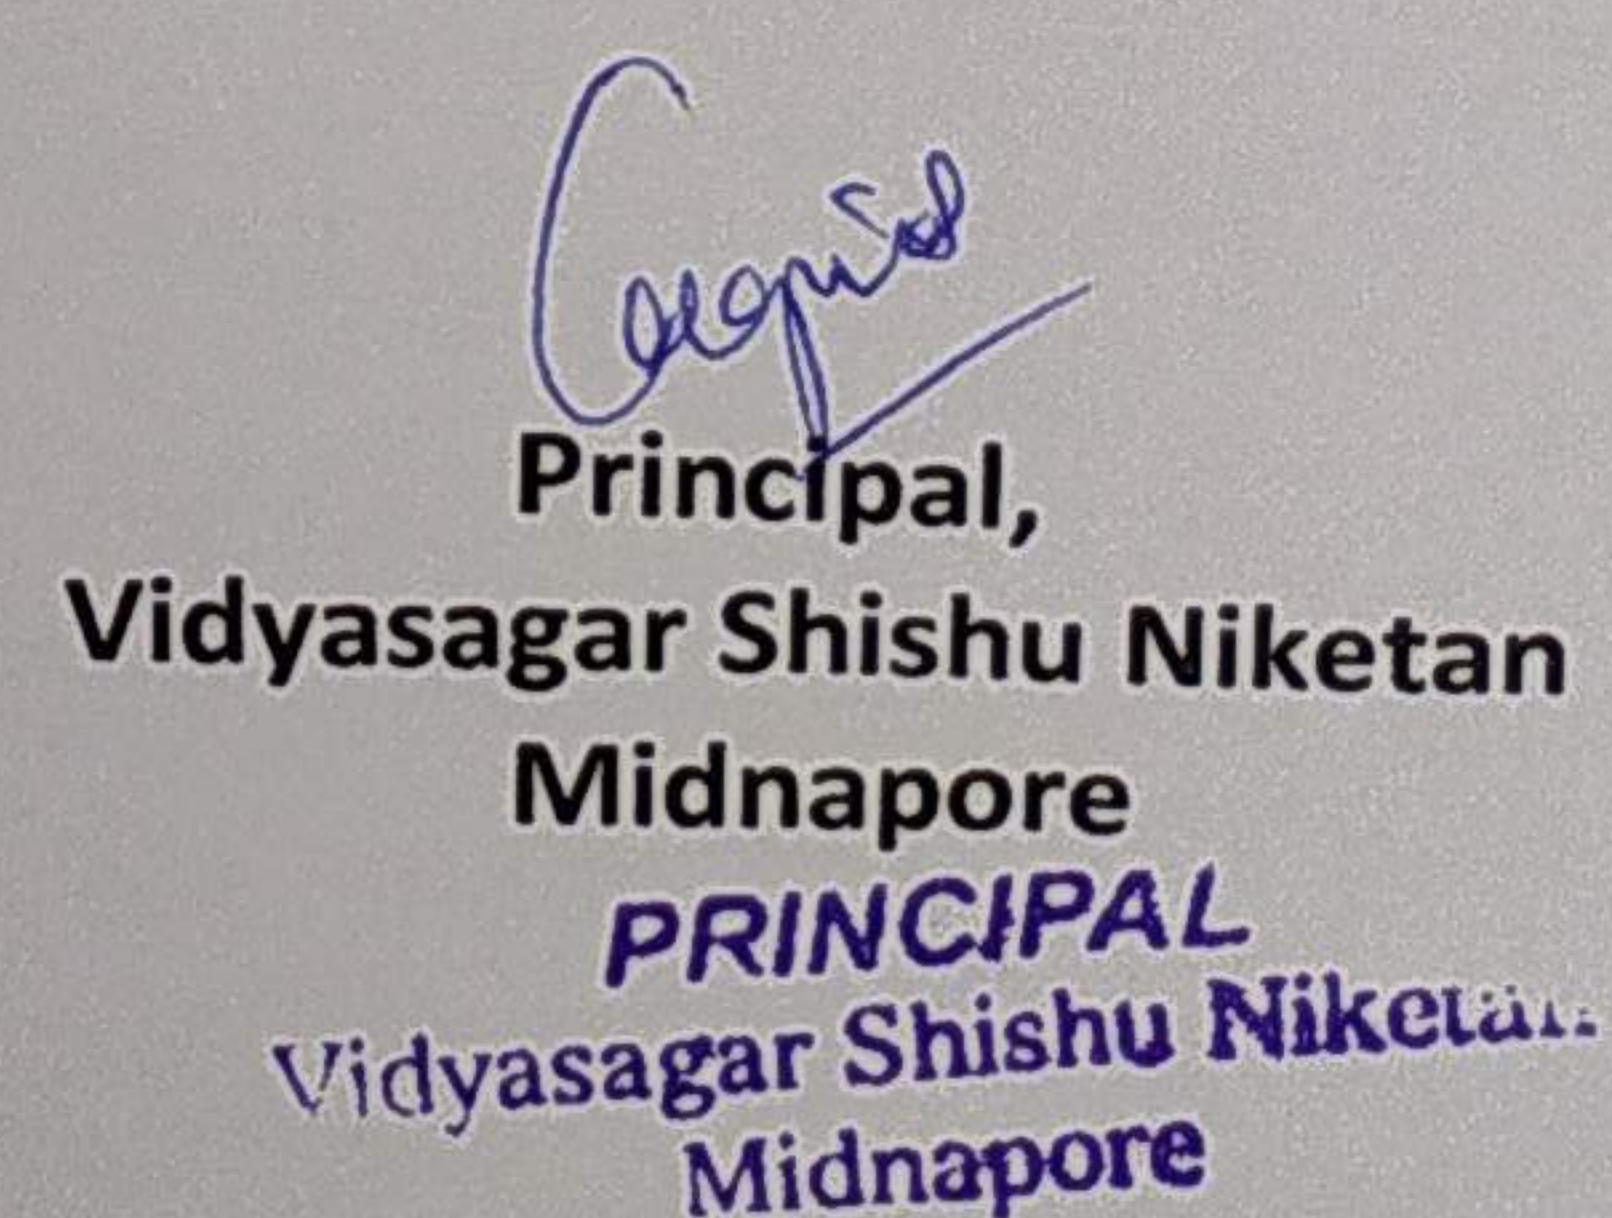 Principal,
Vidyasagar Shishu Niketan
Midnapore
PRINCIPAL
Vidyasagar Shishu Niketan
Midnapore